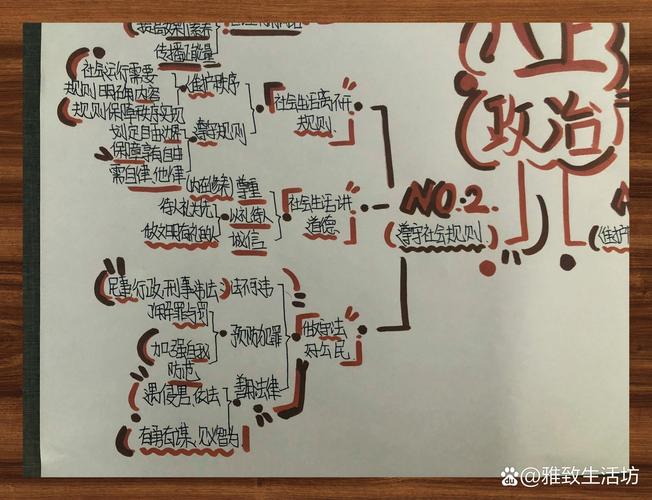 传播正能量
社会运行需要
规则明确内容
维护秩序
规则保障秩序实现
划定自由边界
遵守规则
保障享有自由
需自律,他律
社会生活离不开
规则
尊重
待人礼为先
以礼待人
做文明有礼的人
诚信
社会生活讲
道德
民事,行政,刑事违法
法不可违
了解罪与罚
预防犯罪
加强自我
防范
遇侵害,依法
善用法律
有勇有谋,见义智为
做守法
好公民
NO.2.
遵守社会规则
八上
政治
维护
@雅致生活坊